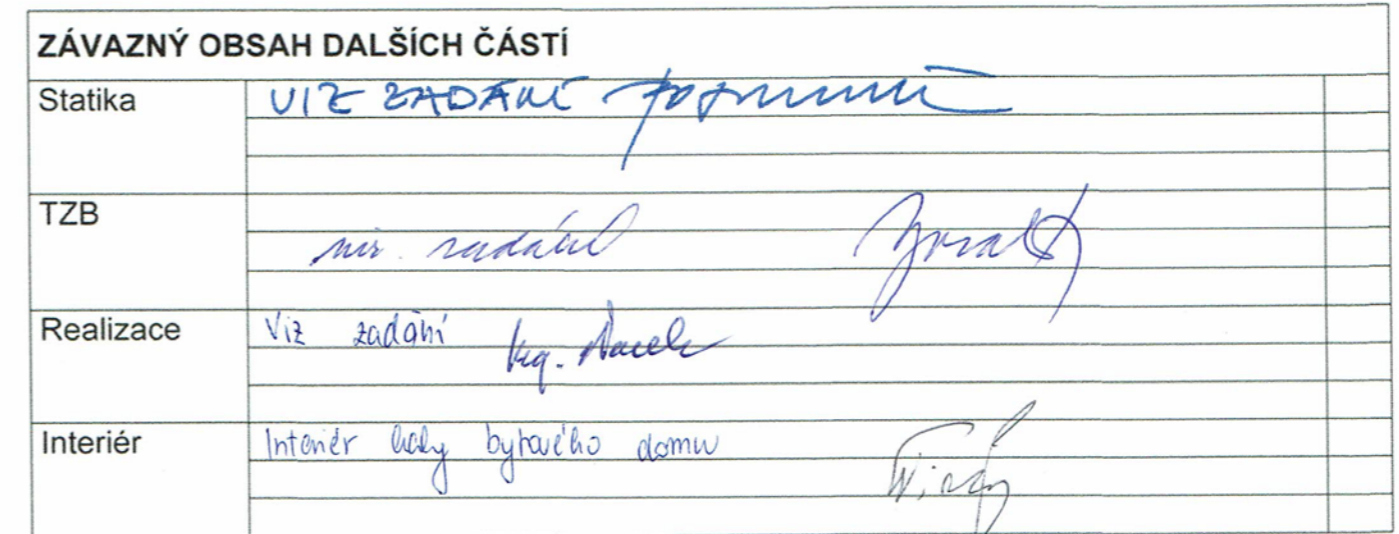 ZÁVAZNÝ OBSAH DALŠÍCH ČÁSTÍ
Statika VIZ ZADÁNÍ
TZB viz. zadání
Realizace Viz zadání Ing.
Interiér Interiér haly bytového domu